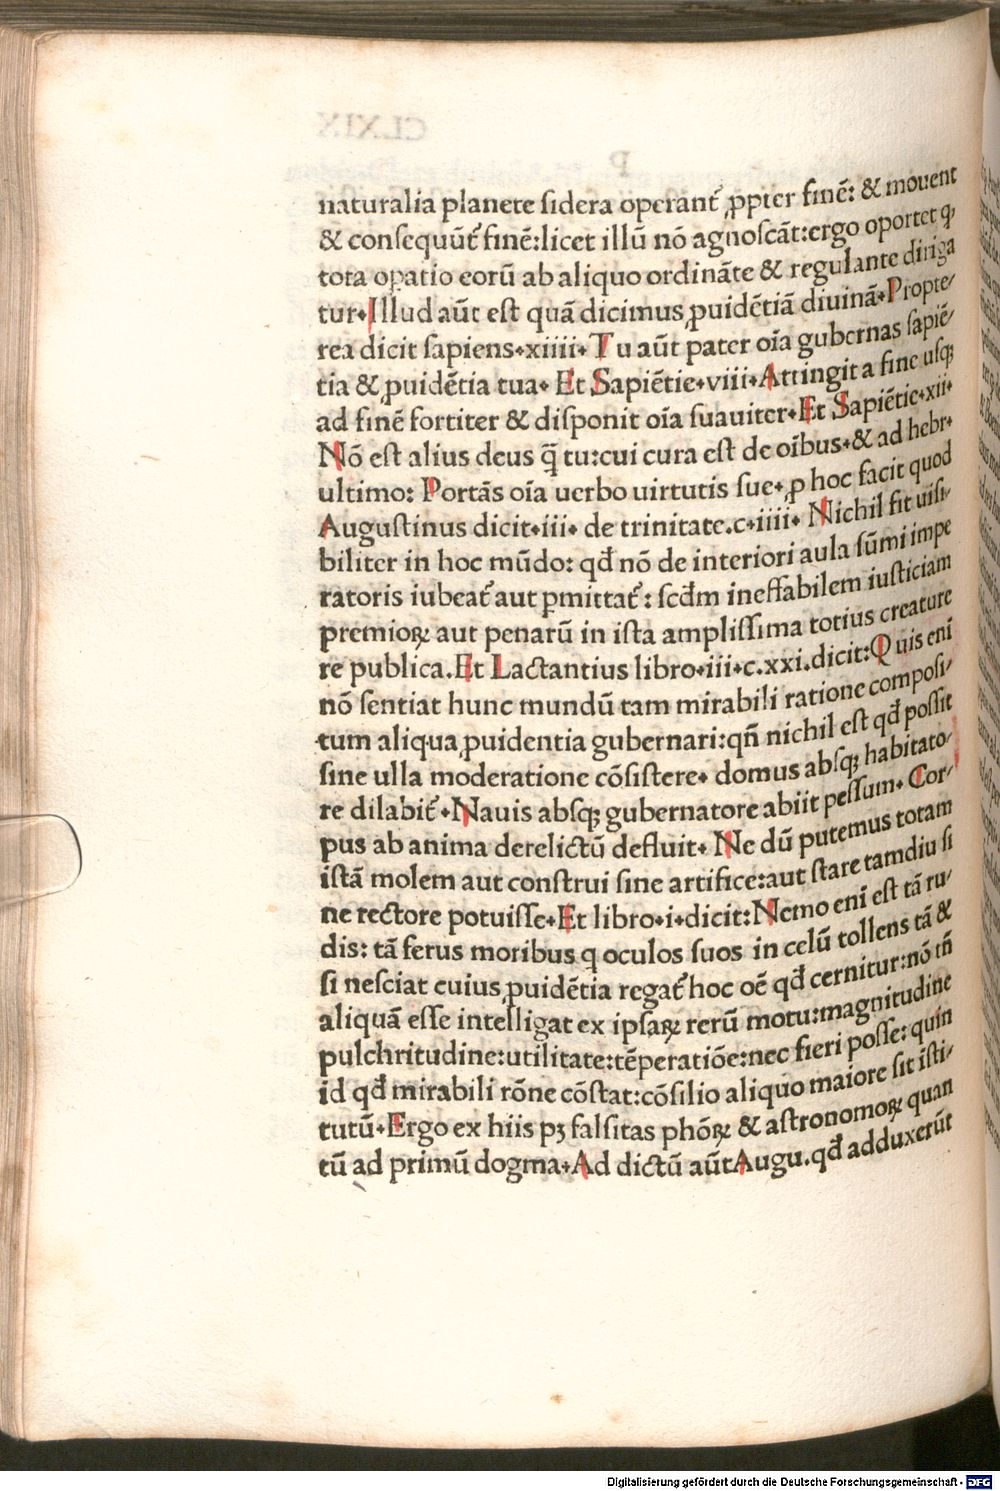 naturalia planete sidera operant᷑ ꝓpter finē: & mouent
& consequūt᷑ finē:licet illū nō agnoscāt:ergo oportet ꝙ
tota oꝑatio eorū ab aliquo ordināte & regulante diriga
tur.Illud aūt est quā dicimus ꝓuidētiā diuinā.Propte/
rea dicit sapiens.xiiii. Tu aūt pater oīa gubernas sapiē/
tia & ꝓuidētia tua. Et Sapiētie.viii.Attingit a fine usqꝫ
ad finē fortiter & disponit oīa suauiter.Et Sapiētie.xii.
Nō est alius deus q̄ tu:cui cura est de oībus.& ad hebr.
ultimo: Portās oīa uerbo uirtutis sue. ꝓ hoc facit quod
Augustinus dicit.iii. de trinitate.c.iiii. Nichil fit uisi/
biliter in hoc mūdo: qđ nō de interiori aula sūmi impe
ratoris iubeat᷑ aut ꝑmittat᷑: scđm ineffabilem iusticiam
premioꝝ aut penarū in ista amplissima totius creature
re publica.Et Lactantius libro.iii.c.xxi.dicit:Quis enī
nō sentiat hunc mundū tam mirabili ratione composi/
tum aliqua ꝓuidentia gubernari:qn̄ nichil est qđ possit
sine ulla moderatione cōsistere. domus absqꝫ habitato/
re dilabit᷑.Nauis absqꝫ gubernatore abiit pessum. Cor/
pus ab anima derelictū defluit. Ne dū putemus totam
istā molem aut construi sine artifice:aut stare tamdiu si
ne rectore potuisse.Et libro.i.dicit:Nemo enī est tā ru/
dis: tā ferus moribus q oculos suos in celū tollens tā &
si nesciat cuius ꝓuidētia regat᷑ hoc oē qđ cernitur:nō tn̄
aliquā esse intelligat ex ipsaꝝ rerū motu:magnitudine
pulchritudine:utilitate:tēperatiōe:nec fieri posse: quin
id qđ mirabili rōne cōstat:cōsilio aliquo maiore sit īsti/
tutū.Ergo ex hiis pꝫ falsitas phōꝝ & astronomoꝝ quan
tū ad primū dogma.Ad dictū aūt Augu.qđ adduxerūt
Digitalisierung gefördert durch die Deutsche Forschungsgemeinschaft - DFG